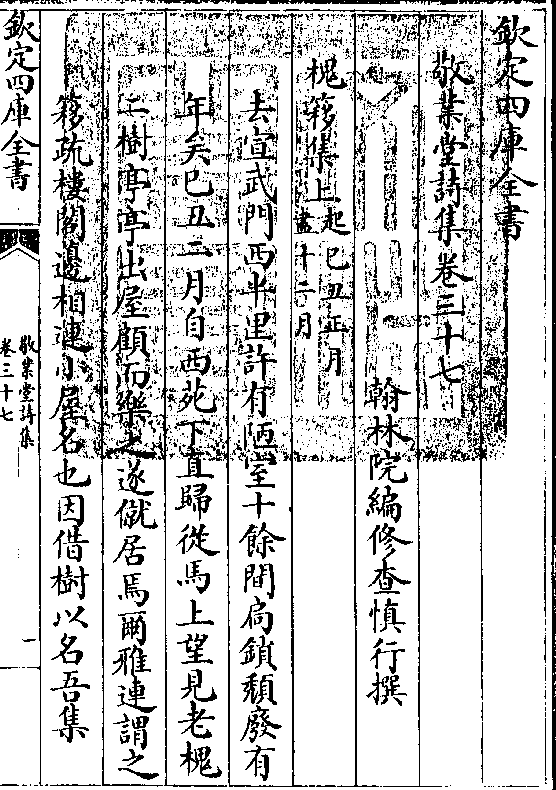 欽定四庫全書
敬業堂詩集卷三十七
翰林院編修查慎行撰
槐簃集上起己丑正月盡十二月
去宣武門西半里許有陋室十餘間扄鎖頽廢有
年矣己丑二月自西苑下直歸從馬上望見老槐
二樹亭亭出屋顧而樂之遂僦居焉爾雅連謂之
簃疏樓閣邊相連小屋名也因借樹以名吾集
欽定四庫全書
敬業堂詩集
卷三十七
一